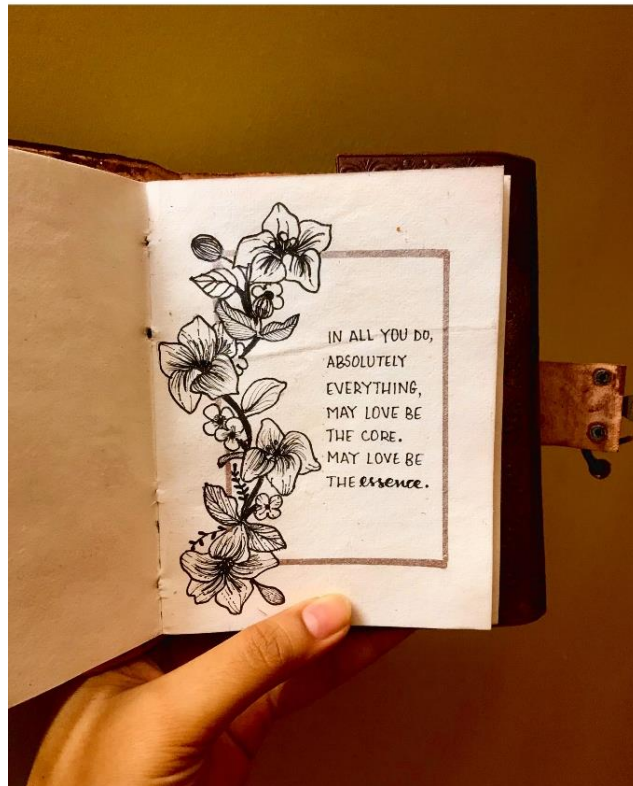 IN ALL YOU DO,
ABSOLUTELY
EVERYTHING,
MAY LOVE BE
THE CORE.
MAY LOVE BE
THE essence.